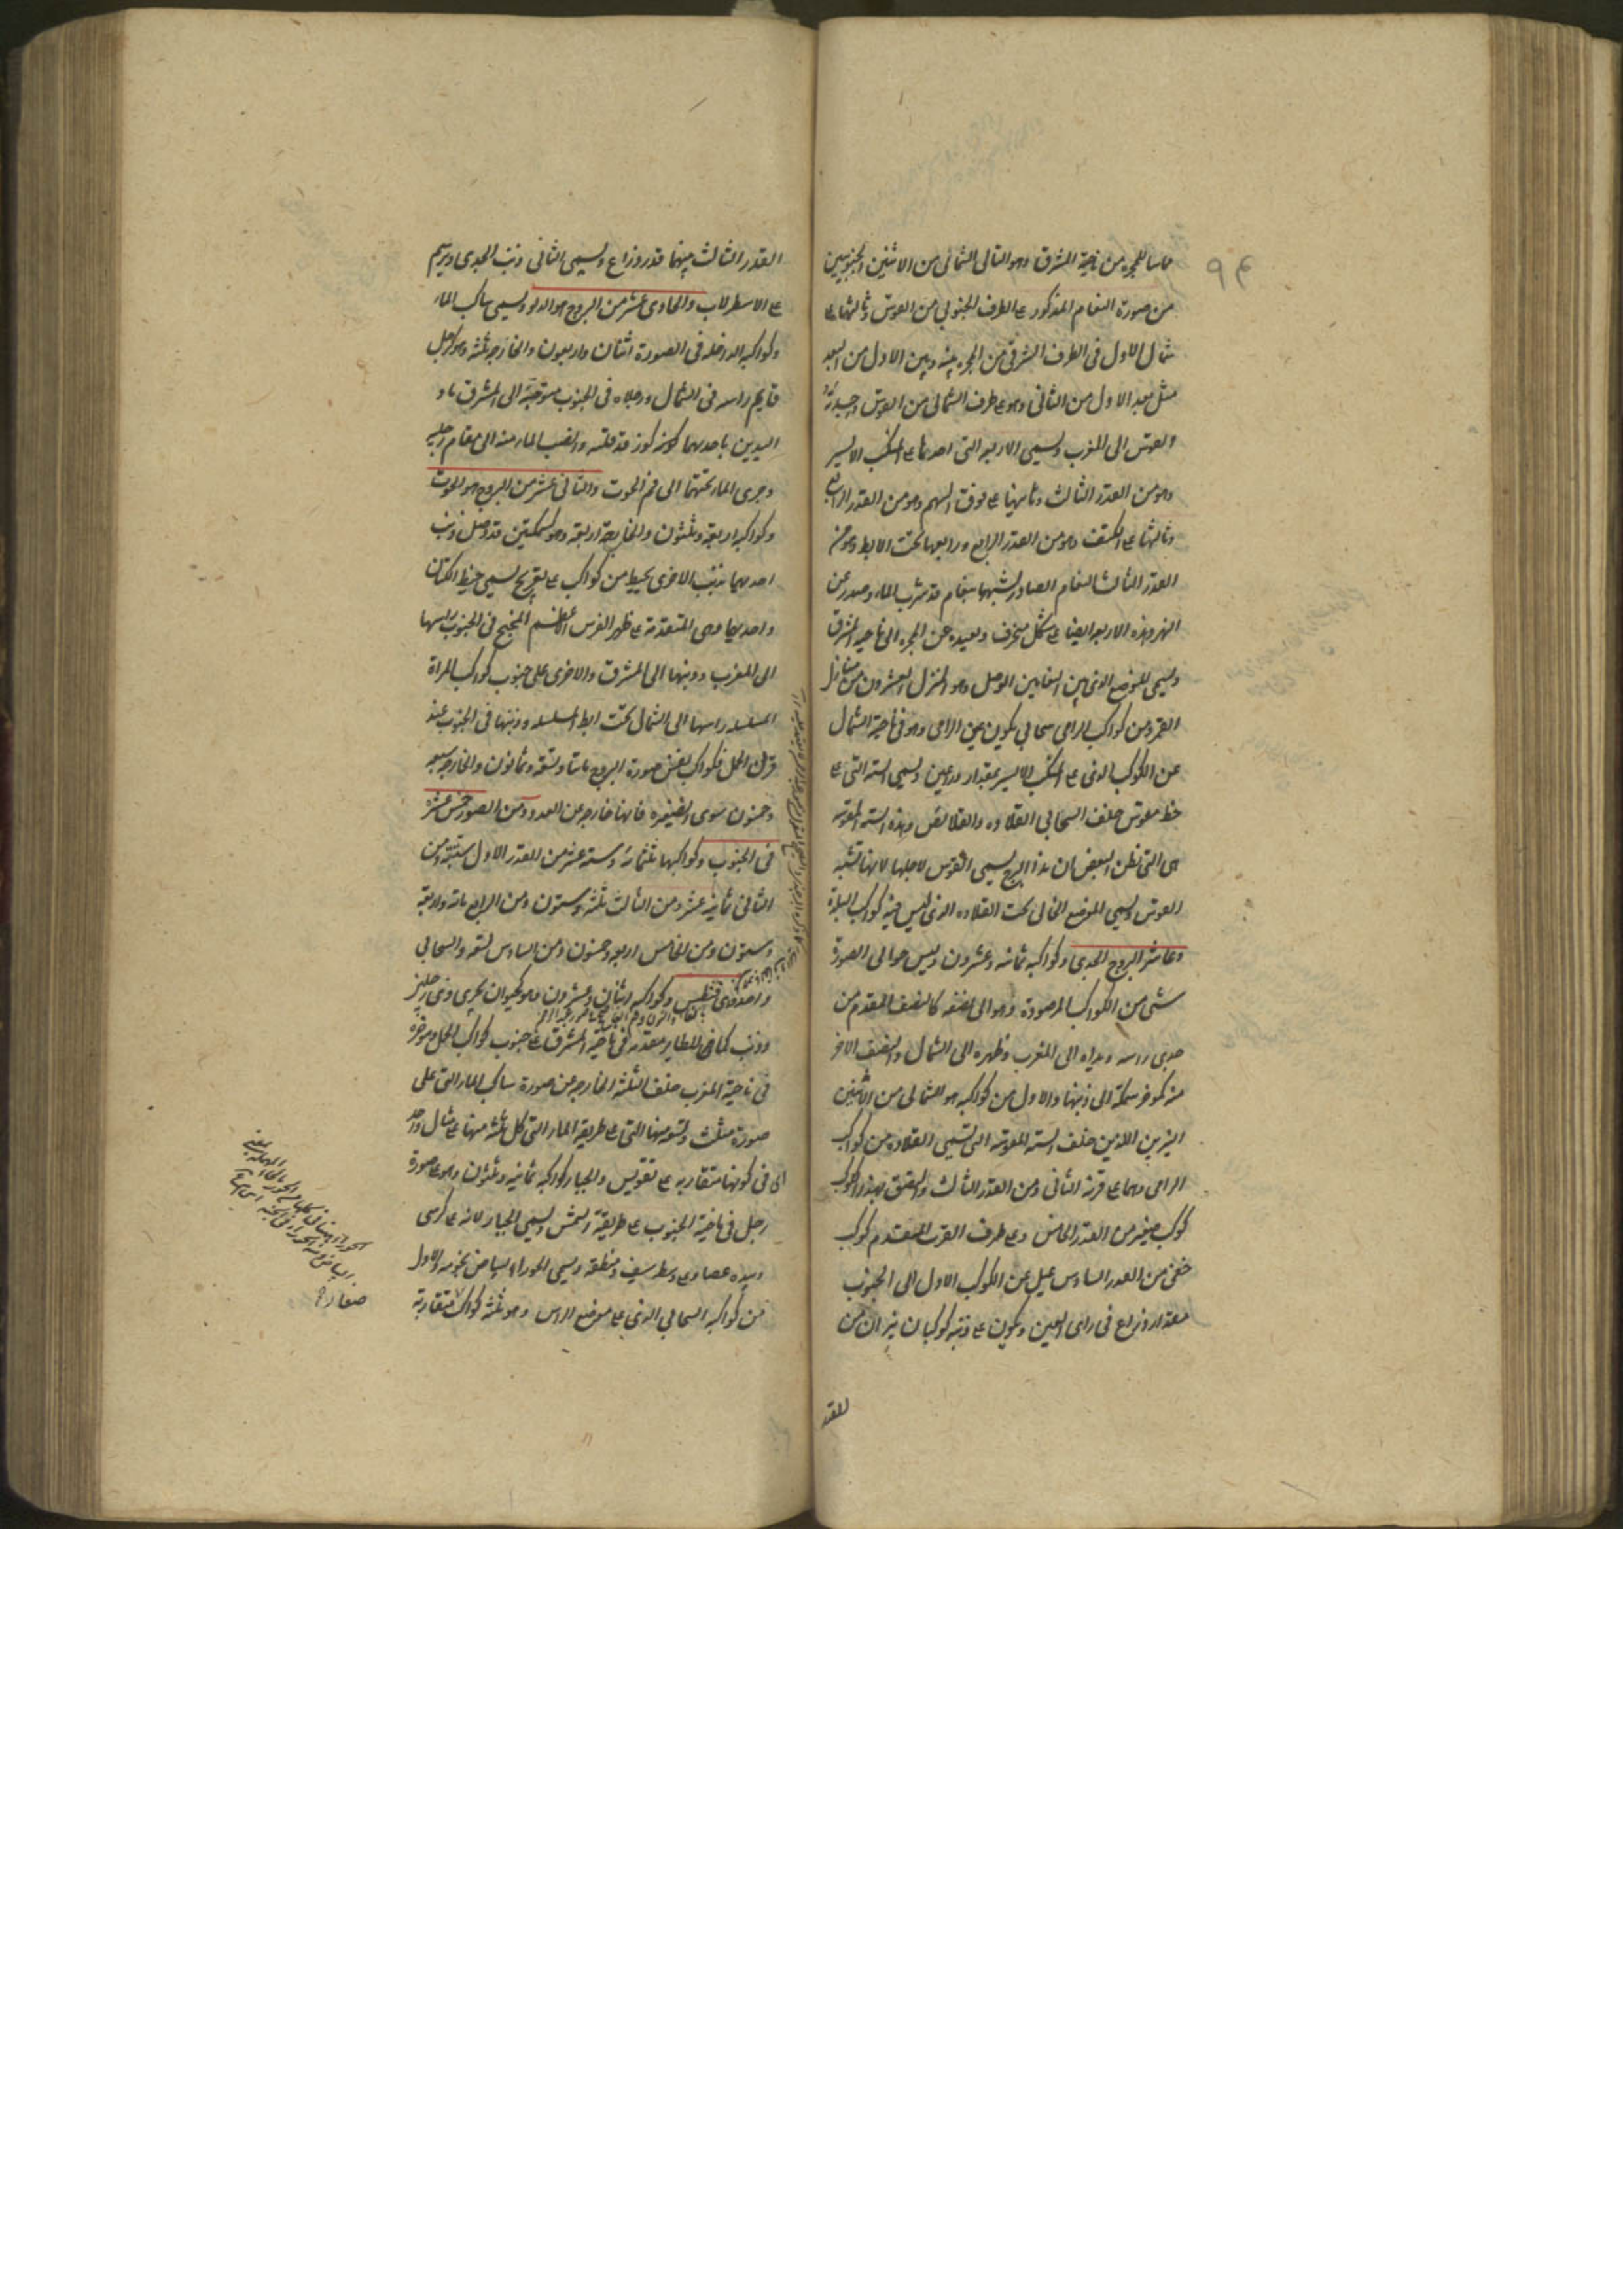 ٩٤
مماسا للمجرة من ناحية المشرق وهو التالى الشمالى من الاثنين الجنوبيين
من صورة النعام المذكور على الطرف الجنوبى من القوس وثالثها على
شمال الاول فى الطرف الشرقى من المجرة بينه وبين الاول من البعد
مثل بعد الاول من الثانى وهو على طرف الشمالى من القوس وحدبة
القوس الى المغرب ويسمى الاربعه التى احدها على المنكب الايسر
وهو من القدر الثالث وثانيها على فوق السهم وهو من القدر الرابع
وثالثها على الكتف وهو من القدر الرابع ورابعها تحت الابط وهو من
القدر الثالث النعام الصادر لشبهها بنعام قد شرب الماء وصدر عن
النهر وهذه الاربعه ايضا على شكل منحرف وبعيده عن المجره الى ناحية المشرق
ويسمى الموضع الذى بين النعامين الوصل وهو المنزل العشرون من منازل
القمر ومن كواكب الرامى سحابى يكون عين الرامى وهو فى ناحية الشمال
عن الكوكب الذى على المنكب الايسر بمقدار ذراعين ويسمى السته التى على
خط مقوس خلف السحابى القلاده والقلائص وهذه السته المقوسه
هى التى يظن البعض ان هذا البرج يسمى القوس لاجلها لانها تشبه
القوس ويسمى الموضع الخالى تحت القلاده الذى ليس فيه كواكب البلدة
وعاشر البروج الجدى وكواكبه ثمانيه وعشرون وليس حوالى الصورة
شى من الكواكب المرصودة وهو الى نصفه كالنصف المقدم من
جدى راسه ويداه الى المغرب وظهره الى الشمال والنصف الاخر
منه كموخر سمكة الى ذنبها والاول من كواكبه هو الشمالى من الاثنين
النيرين اللذين خلف السته المقوسه التى تسمى القلاده من كواكب
الرامى وهما على قرنه الثانى ومن القدر الثالث والملتصق بهذا الكوكب
كوكب صغير من القدر الخامس وعلى طرف القرن المتقدم كوكب
خفى من القدر السادس يميل عن الكوكب الاول الى الجنوب
مقدار ذراع فى راى العين ويكون على ذنبه كوكبان نيران من
القدر
القدر الثالث بينهما قدر ذراع ويسمى الثانى ذنب الجدى ويرسم
على الاسطرلاب والحادى عشر من البروج هو الدلو ويسمى ساكب الماء
وكواكبه الداخله فى الصورة اثنان واربعون والخارجه ثلثه وهو كرجل
قايم راسه فى الشمال ورجلاه فى الجنوب متوجها الى المشرق ماد
اليدين باحديهما كوز قد قلبه وانصب الماء منه الى مقام رجليه
وجرى الماء تحتهما الى فم الحوت والثانى عشر من البروج هو الحوت
وكواكبه اربعة وثلثون والخارجة اربعة وهو كسمكتين قد وصل ذنب
احديهما بذنب الاخرى بخيط من كواكب على تعريج يسمى خيط الكتان
واحديهما وهى المتقدمة على ظهر الفرس الاعظم المجنح فى الجنوب راسها
الى المغرب وذنبها الى المشرق والاخرى على جنوب كواكب المراة
المسلسله راسها الى الشمال تحت ابط المسلسله وذنبها فى الجنوب عند
قرن الحمل فكواكب نفس صورة البروج مائتا وتسعة وثمانون والخارجه سبعه
وخمسون سوى الضفيره فانها خارجه عن العدد ومن الصور خمس عشرة
فى الجنوب وكواكبها ثلثمائه وسته عشر من القدر الاول سبعة ومن
الثانى ثمانية عشر ومن الثالث ثلثه وستون ومن الرابع مائه واربعة
وستون ومن الخامس اربعه وخمسون ومن السادس تسعه والسحابى
واحد فمنها قيطس وكواكبه اثنان وعشرون وهو كحيوان بحرى ذى رجلين
وذنب كما فى للطاير مقدمه فى ناحية المشرق على جنوب كواكب الحمل وموخره
فى ناحية المغرب خلف الثلثه الخارجه من صورة ساكب الماء التى على
صورة مثلث وتسعه منها التى على طريقة الماء التى كل ثلثه منها على مثال واحد
الى فى كونها متقاربه على تقويس والجبار كواكبه ثمانيه وثلثون وهو على صورة
رجل فى ناحية الجنوب على طريقة الشمس ويسمى الجبار لانه على كرسى
وبيده عصا وعلى وسطه سيف ومنطقه ويسمى الجوزاء لبياض نجومه والاول
من كواكبه السحابى الذى على موضع الراس وهو ثلثة كواكب متقاربة
صفار